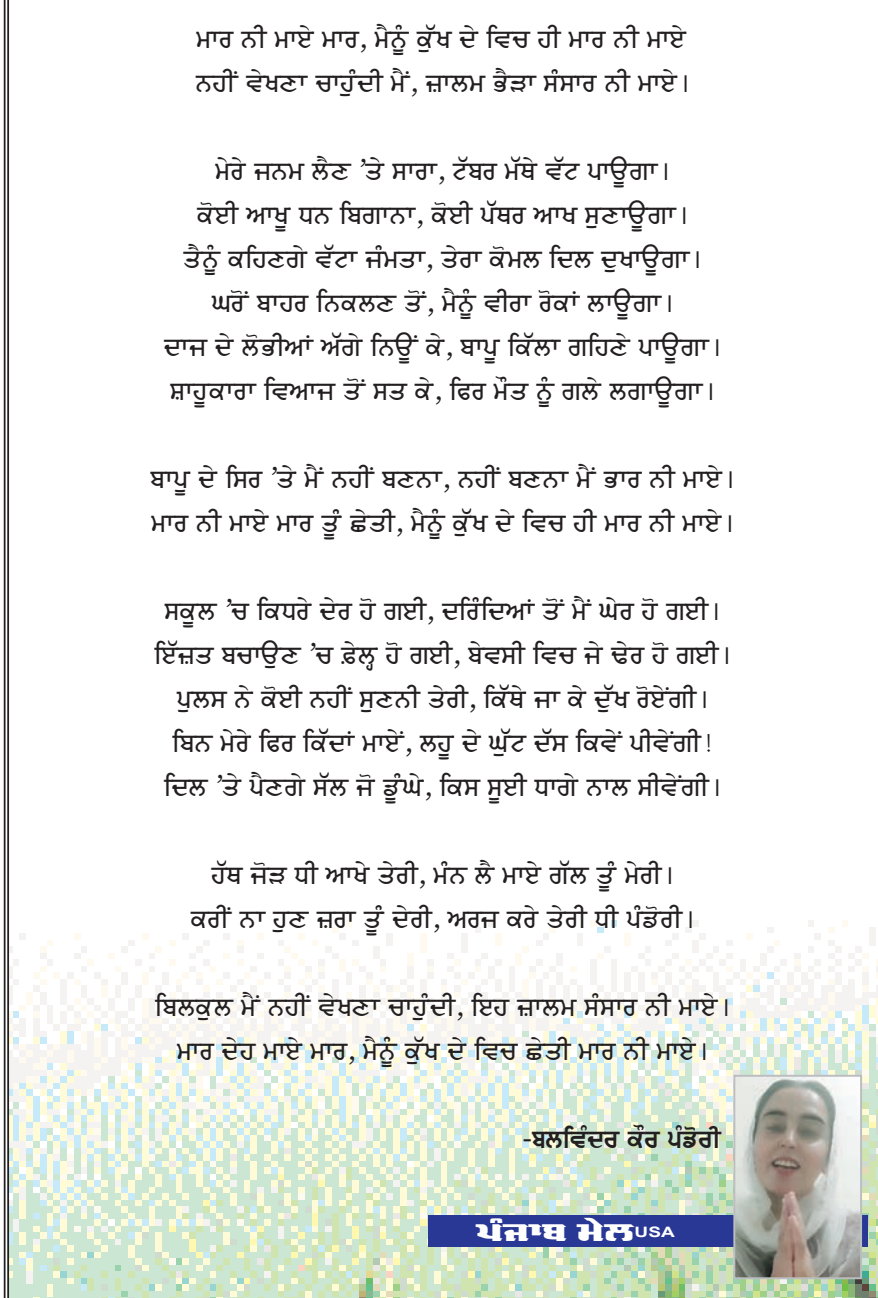 ਮਾਰ ਨੀ ਮਾਏ ਮਾਰ, ਮੈਨੂੰ ਕੁੱਖ ਦੇ ਵਿਚ ਹੀ ਮਾਰ ਨੀ ਮਾਏ
ਨਹੀਂ ਵੇਖਣਾ ਚਾਹੁੰਦੀ ਮੈਂ, ਜ਼ਾਲਮ ਭੈੜਾ ਸੰਸਾਰ ਨੀ ਮਾਏ।
ਮੇਰੇ ਜਨਮ ਲੈਣ ’ਤੇ ਸਾਰਾ, ਟੱਬਰ ਮੱਥੇ ਵੱਟ ਪਾਊਗਾ।
ਕੋਈ ਆਖੂ ਧਨ ਬਿਗਾਨਾ, ਕੋਈ ਪੱਥਰ ਆਖ ਸੁਣਾਊਗਾ।
ਤੈਨੂੰ ਕਹਿਣਗੇ ਵੱਟਾ ਜੰਮਤਾ, ਤੇਰਾ ਕੋਮਲ ਦਿਲ ਦੁਖਾਊਗਾ।
ਘਰੋਂ ਬਾਹਰ ਨਿਕਲਣ ਤੋਂ, ਮੈਨੂੰ ਵੀਰਾ ਰੋਕਾਂ ਲਾਊਗਾ।
ਦਾਜ ਦੇ ਲੋਭੀਆਂ ਅੱਗੇ ਨਿਊਂ ਕੇ, ਬਾਪੂ ਕਿੱਲਾ ਗਹਿਣੇ ਪਾਊਗਾ।
ਸ਼ਾਹੂਕਾਰਾ ਵਿਆਜ ਤੋਂ ਸਤ ਕੇ, ਫਿਰ ਮੌਤ ਨੂੰ ਗਲੇ ਲਗਾਊਗਾ।
ਬਾਪੂ ਦੇ ਸਿਰ ’ਤੇ ਮੈਂ ਨਹੀਂ ਬਣਨਾ, ਨਹੀਂ ਬਣਨਾ ਮੈਂ ਭਾਰ ਨੀ ਮਾਏ।
ਮਾਰ ਨੀ ਮਾਏ ਮਾਰ ਤੂੰ ਛੇਤੀ, ਮੈਨੂੰ ਕੁੱਖ ਦੇ ਵਿਚ ਹੀ ਮਾਰ ਨੀ ਮਾਏ।
ਸਕੂਲ ’ਚ ਕਿਧਰੇ ਦੇਰ ਹੋ ਗਈ, ਦਰਿੰਦਿਆਂ ਤੋਂ ਮੈਂ ਘੇਰ ਹੋ ਗਈ।
ਇੱਜ਼ਤ ਬਚਾਉਣ ’ਚ ਫ਼ੇਲ੍ਹ ਹੋ ਗਈ, ਬੇਵਸੀ ਵਿਚ ਜੇ ਢੇਰ ਹੋ ਗਈ।
ਪੁਲਸ ਨੇ ਕੋਈ ਨਹੀਂ ਸੁਣਨੀ ਤੇਰੀ, ਕਿੱਥੇ ਜਾ ਕੇ ਦੁੱਖ ਰੋਏਂਗੀ।
ਬਿਨ ਮੇਰੇ ਫਿਰ ਕਿੱਦਾਂ ਮਾਏਂ, ਲਹੂ ਦੇ ਘੁੱਟ ਦੱਸ ਕਿਵੇਂ ਪੀਵੇਂਗੀ!
ਦਿਲ ’ਤੇ ਪੈਣਗੇ ਸੱਲ ਜੋ ਡੂੰਘੇ, ਕਿਸ ਸੂਈ ਧਾਗੇ ਨਾਲ ਸੀਵੇਂਗੀ।
ਹੱਥ ਜੋੜ ਧੀ ਆਖੇ ਤੇਰੀ, ਮੰਨ ਲੈ ਮਾਏ ਗੱਲ ਤੂੰ ਮੇਰੀ।
ਕਰੀਂ ਨਾ ਹੁਣ ਜ਼ਰਾ ਤੂੰ ਦੇਰੀ, ਅਰਜ ਕਰੇ ਤੇਰੀ ਧੀ ਪੰਡੋਰੀ।
ਬਿਲਕੁਲ ਮੈਂ ਨਹੀਂ ਵੇਖਣਾ ਚਾਹੁੰਦੀ, ਇਹ ਜ਼ਾਲਮ ਸੰਸਾਰ ਨੀ ਮਾਏ।
ਮਾਰ ਦੇਹ ਮਾਏ ਮਾਰ, ਮੈਨੂੰ ਕੁੱਖ ਦੇ ਵਿਚ ਛੇਤੀ ਮਾਰ ਨੀ ਮਾਏ।
-ਬਲਵਿੰਦਰ ਕੌਰ ਪੰਡੋਰੀ
ਪੰਜਾਬ ਮੇਲ USA